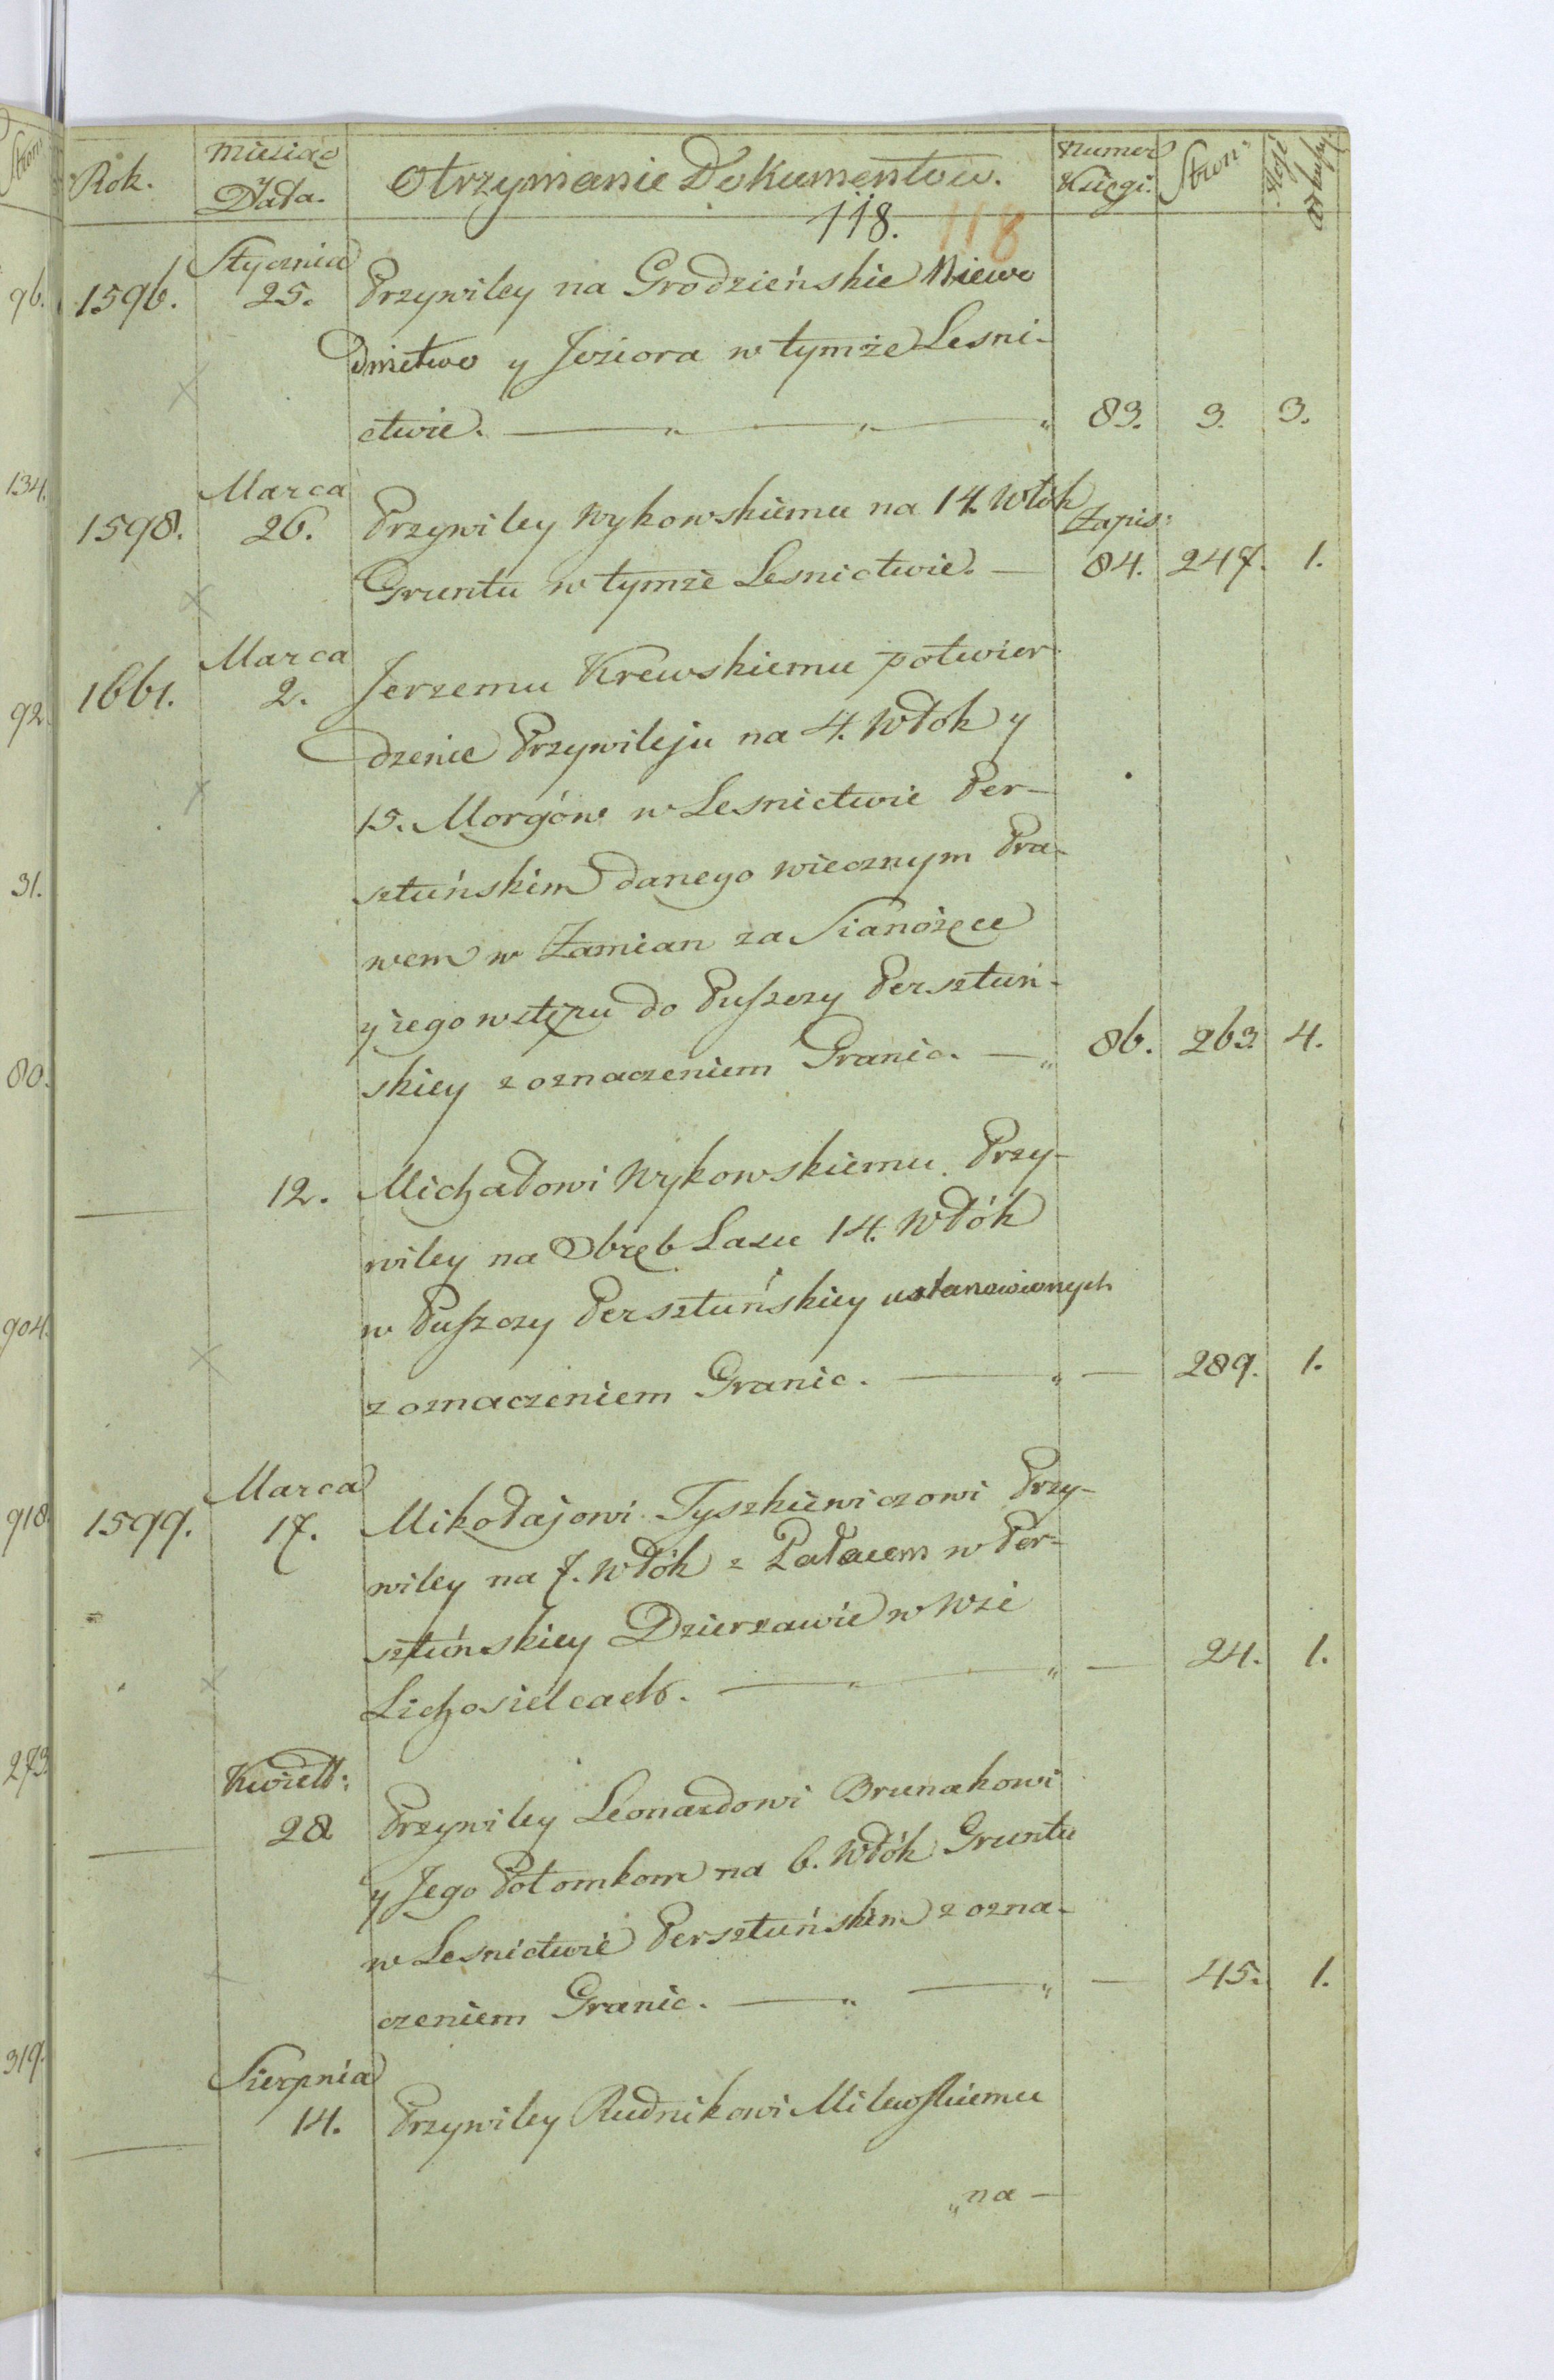 Rok. Miesiąc y Data. Otrzymanie Dokumentow. Numer Księgi. Stron: Ilość Arkuszy.
118. 118
Stycznia
1596. 25. Przywiley na Grodzieńskie Niewo
dnictwo y Jeziora w tymże Lesni-
ctwie. 83. 3. 3.
Marca
1598. 26. Przywiley Wykowskiemu na 14. Włok Zapis:
Gruntu w tymże Lesnictwie. 84. 247. 1.
Marca
1661. 2. Jerzemu Krewskiemu potwier
dzenie Przywileju na 4. Włok y
15. Morgów w Lesnictwie Per-
sztuńskim danego wiecznym Pra-
wem w Zamian za Sianożęce
y iego wstępu do Puszczy Persztuń-
skiey z oznaczeniem Granic. 86. 263. 4.
12. Michałowi Wykowskiemu Przy-
wiley na Obręb Lasu 14. Włók
w Puszczy Persztuńskiey ustanowionych
z oznaczeniem Granic. 289. 1.
Marca
1599. 17. Mikołajowi Tyszkiewiczowi Przy-
wiley na 7. Włók z Pałacem w Per-
sztuńskiey Dzierzawie w Wsi
Lichosielcach. 24. 1.
Kwiett:
28 Przywiley Leonardowi Brunakowi
y Jego Potomkom na 6. Włók Gruntu
w Lesnictwie Persztuńskim z ozna-
czeniem Granic. 45. 1.
Sierpnia
14. Przywiley Rudnikowi Milewskiemu
na
Stron
96.
134.
92
31.
80.
904.
918.
273
319.